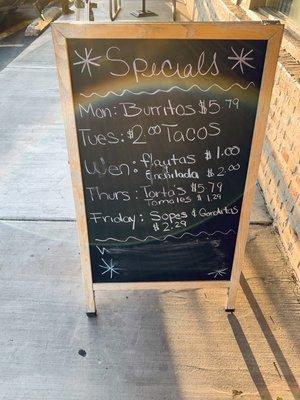 Specials
Mon: Burritos $5.79
Tues: $2.00 Tacos
Wen: flautas $1.00
Enchilada $2.00
Thurs: Torta's $5.79
Tomales $1.29
Friday: Sopes & Gorditas
$2.29